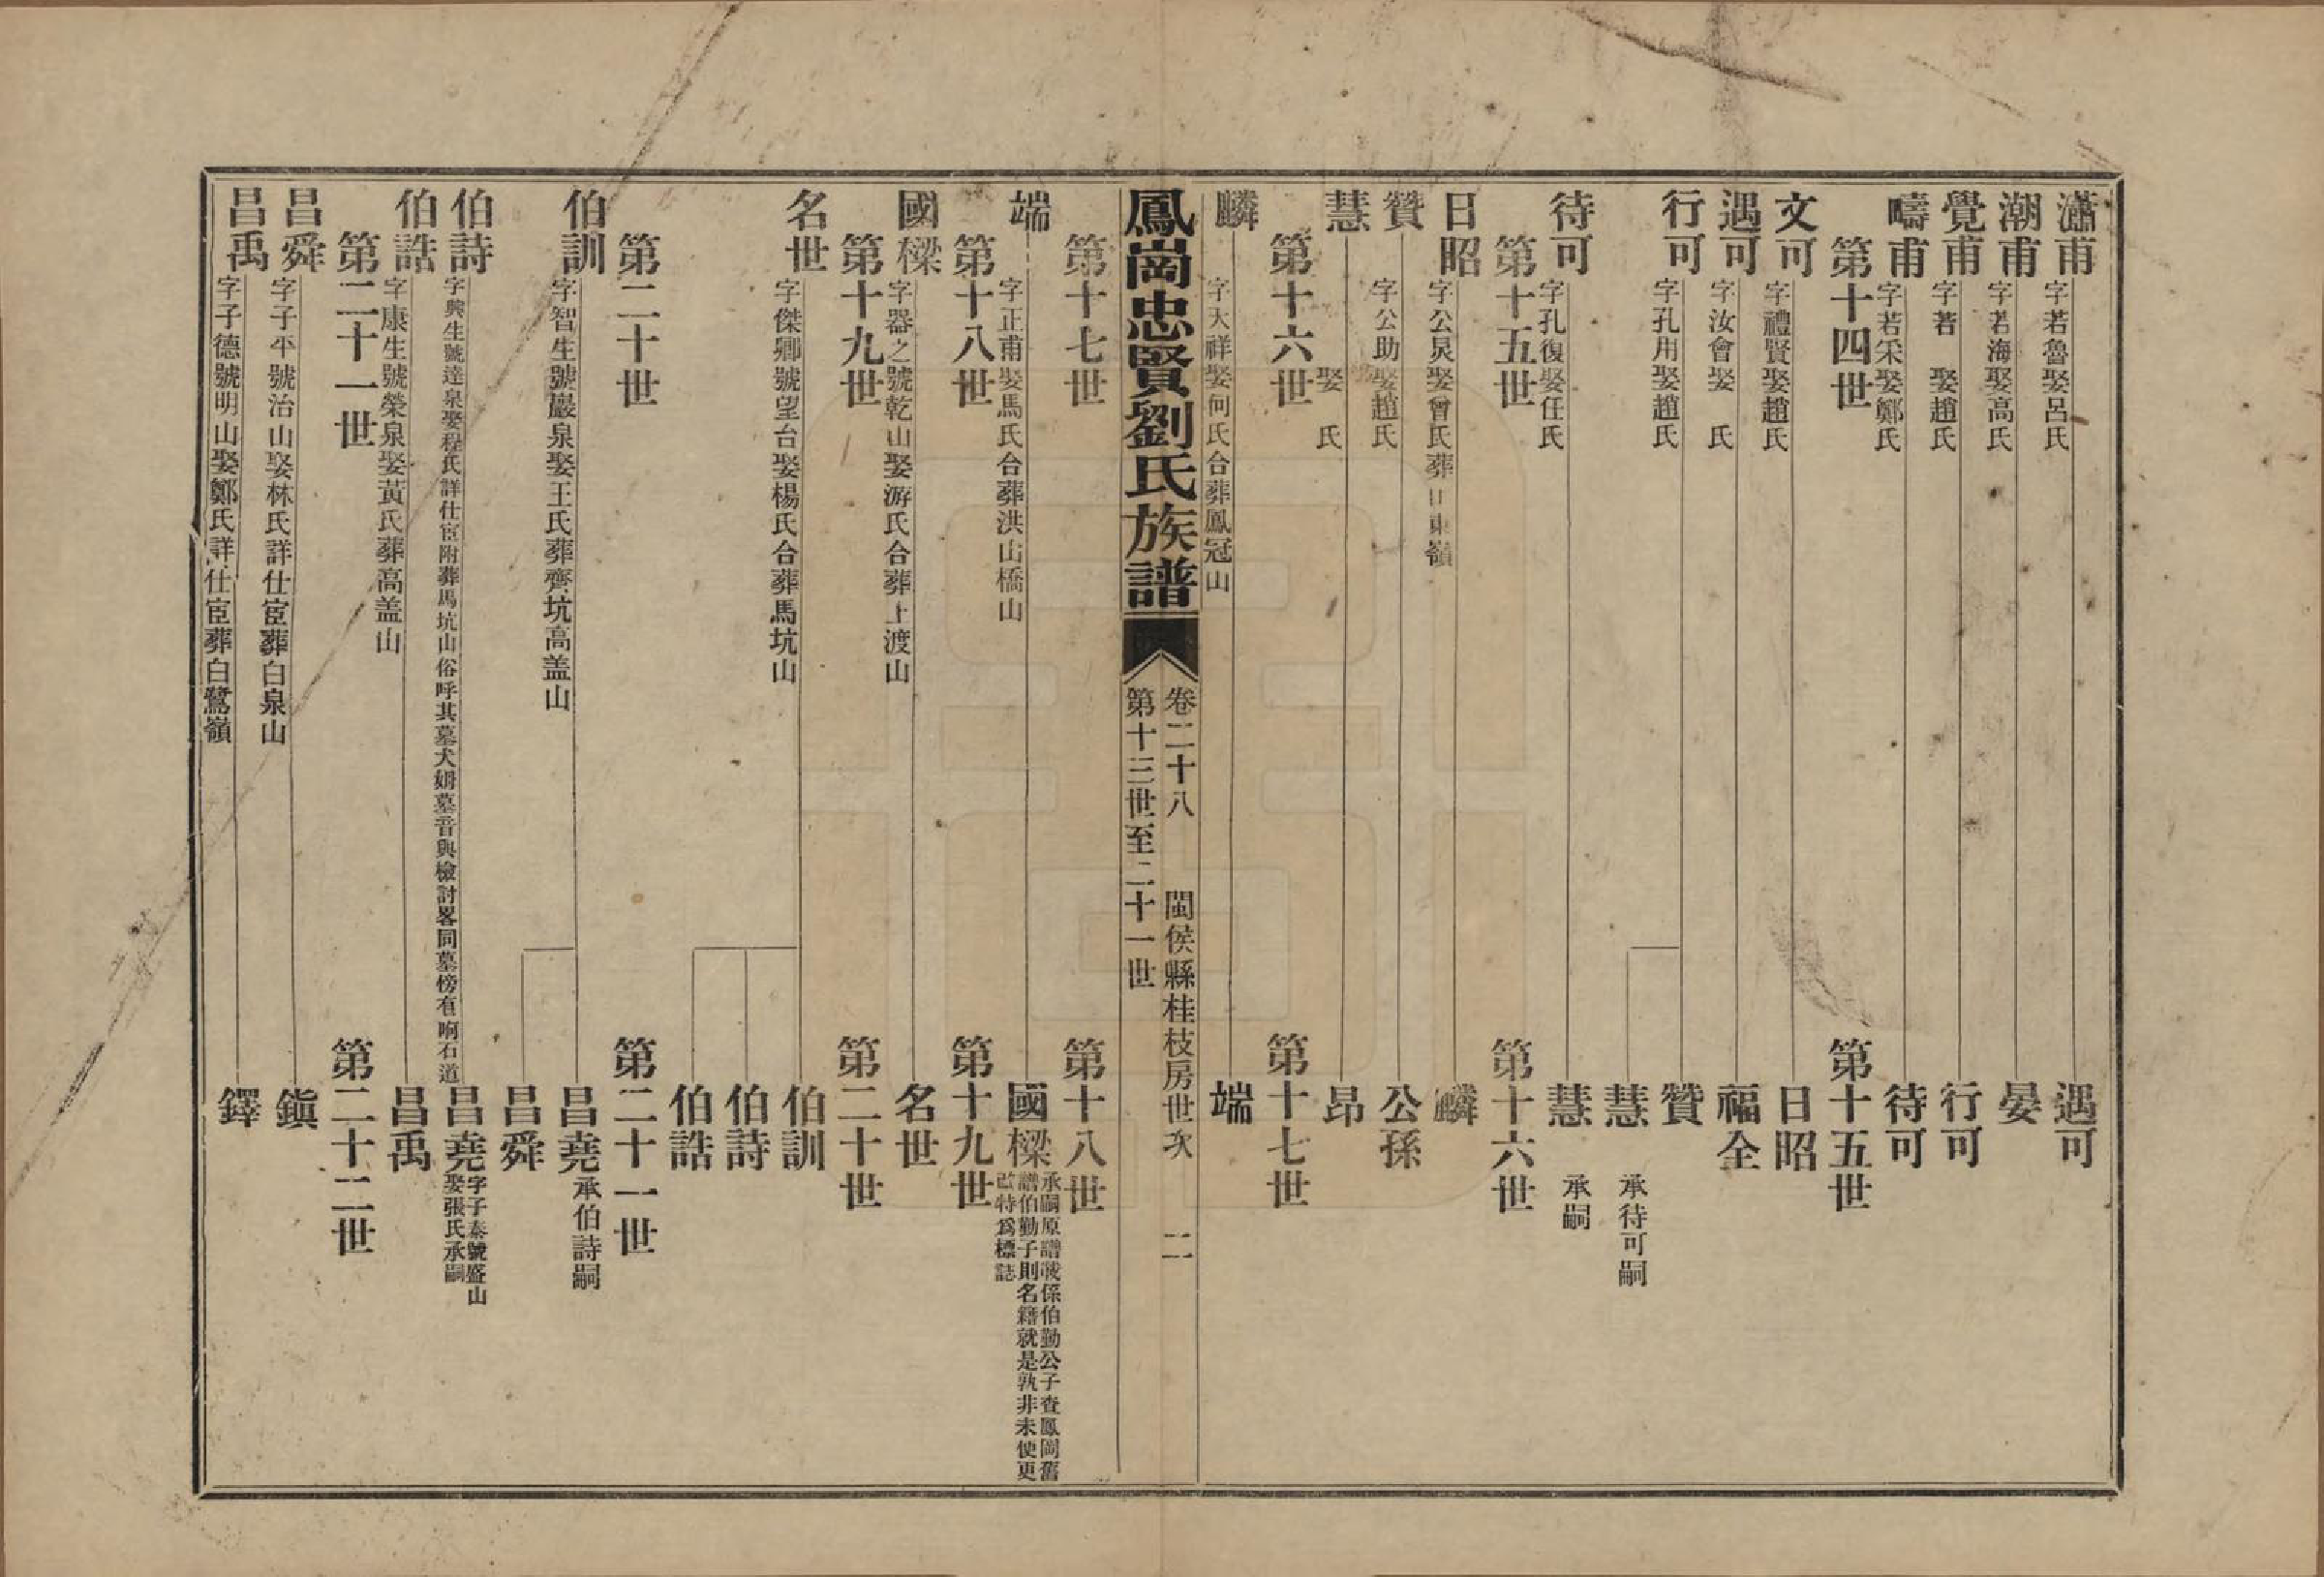 瀟甫 字若魯娶呂氏 遇可
潮甫 字若海娶高氏 晏
覺甫 字若 娶趙氏 行可
疇甫 字若采娶鄭氏 待可
第十四世 第十五世
文可 字禮賢娶趙氏 日昭
遇可 字汝會娶 氏 福全
行可 字孔用娶趙氏 贊
慧 承待可嗣
待可 字孔復娶任氏 慧 承嗣
第十五世 第十六世
日昭 字公炅娶曾氏葬日東嶺 麟
贊 字公助娶趙氏 公孫
慧 娶 氏 昂
第十六世 第十七世
麟 字天祥娶何氏合葬鳳冠山 端
鳳崗忠賢劉氏族譜
卷二十八 閩侯縣桂枝房世次 二
第十三世至二十一世
第十七世 第十八世
端 字正甫娶馬氏合葬洪山橋山 國樑 承嗣原譜載係伯勤公子查鳳崗舊
譜伯勤子則名籍就是孰非未便更
改特爲標誌
第十八世 第十九世
國樑 字器之號乾山娶游氏合葬上渡山 名世
第十九世 第二十世
名世 字傑卿號望台娶楊氏合葬馬坑山 伯訓
伯詩
伯誥
第二十世 第二十一世
伯訓 字智生號巖泉娶王氏葬齊坑高盖山 昌堯 承伯詩嗣
昌舜
伯詩 字興生號達泉娶程氏詳仕宦附葬馬坑山俗呼其墓犬姆墓音與檢討畧同墓傍有响石道 昌堯 字子泰號盛山
娶張氏承嗣
伯誥 字康生號榮泉娶黃氏葬高盖山 昌禹
第二十一世 第二十二世
昌舜 字子平號治山娶林氏詳仕宦葬白泉山 鎭
昌禹 字子德號明山娶鄭氏詳仕宦葬白鷺嶺 鐸